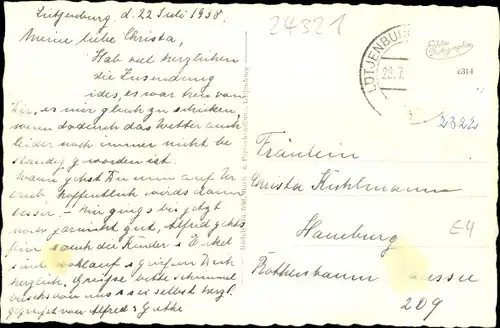 Lütjenburg, d. 22 Juli 1958.
Meine liebe Christa,
Hab viel herzlichen
die Zusendung
ides, es war von
Dir, es mir gleich zu schicken,
wenn dadurch das Wetter auch
leider noch immer nicht be
ständig geworden ist.
Wann gehst Du nun auf Ur
Hoffentlich wirds dann
besser. – Mir gings bis jetzt
noch garnicht gut, Alfred gehts
hier auch die Kinder & Enkel
sind wohlauf & grüßen Dich
herzlich. Grüße bitte
von uns & sei selbst herzl.
gegrüßt von Alfred &
24321
LÜTJENBURG
22.7.
Echte
Photographie
c314
2322
Fräulein
Christa Kühlmann
Hamburg
Rothenbaum
209
E4